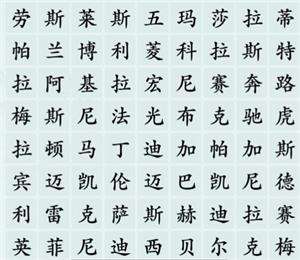 劳斯莱斯五玛莎拉蒂
帕兰博利菱科拉斯特
拉阿基拉宏尼赛奔路
梅斯尼法光布克驰虎
拉顿马丁迪加帕加斯
宾迈凯伦迈巴凯尼德
利雷克萨斯赫迪拉赛
英菲尼迪西贝尔克梅